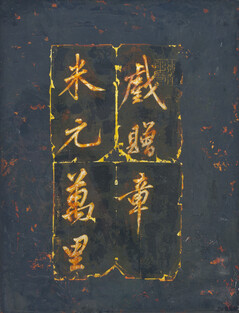 戲贈
米元
章
萬里